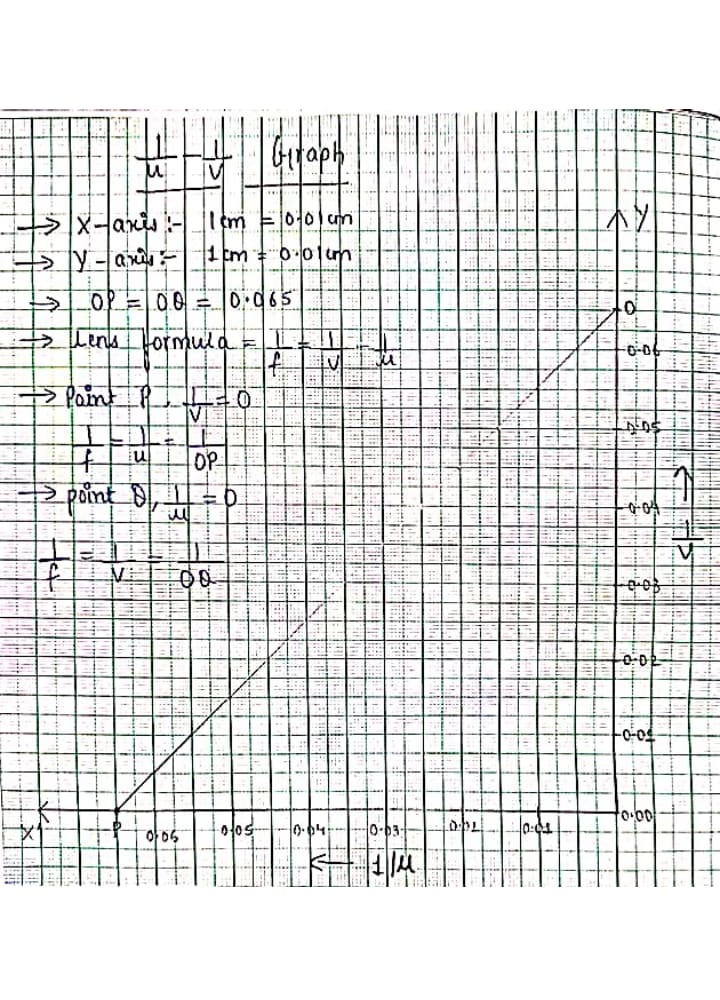 1/u - 1/v Graph
→ X-axis:- 1cm = 0.01cm
→ Y-axis:- 1cm = 0.01cm
→ OP = OQ = 0.065
→ Lens formula = 1/f = 1/v - 1/u
→ Point P, 1/v = 0
1/f = 1/u = 1/OP
→ point Q, 1/u = 0
1/f = 1/v = 1/OQ
Y
Q
0.06
0.05
0.04
1/v
0.03
0.02
0.01
0.00
X' P 0.06 0.05 0.04 0.03 0.01
← 1/u